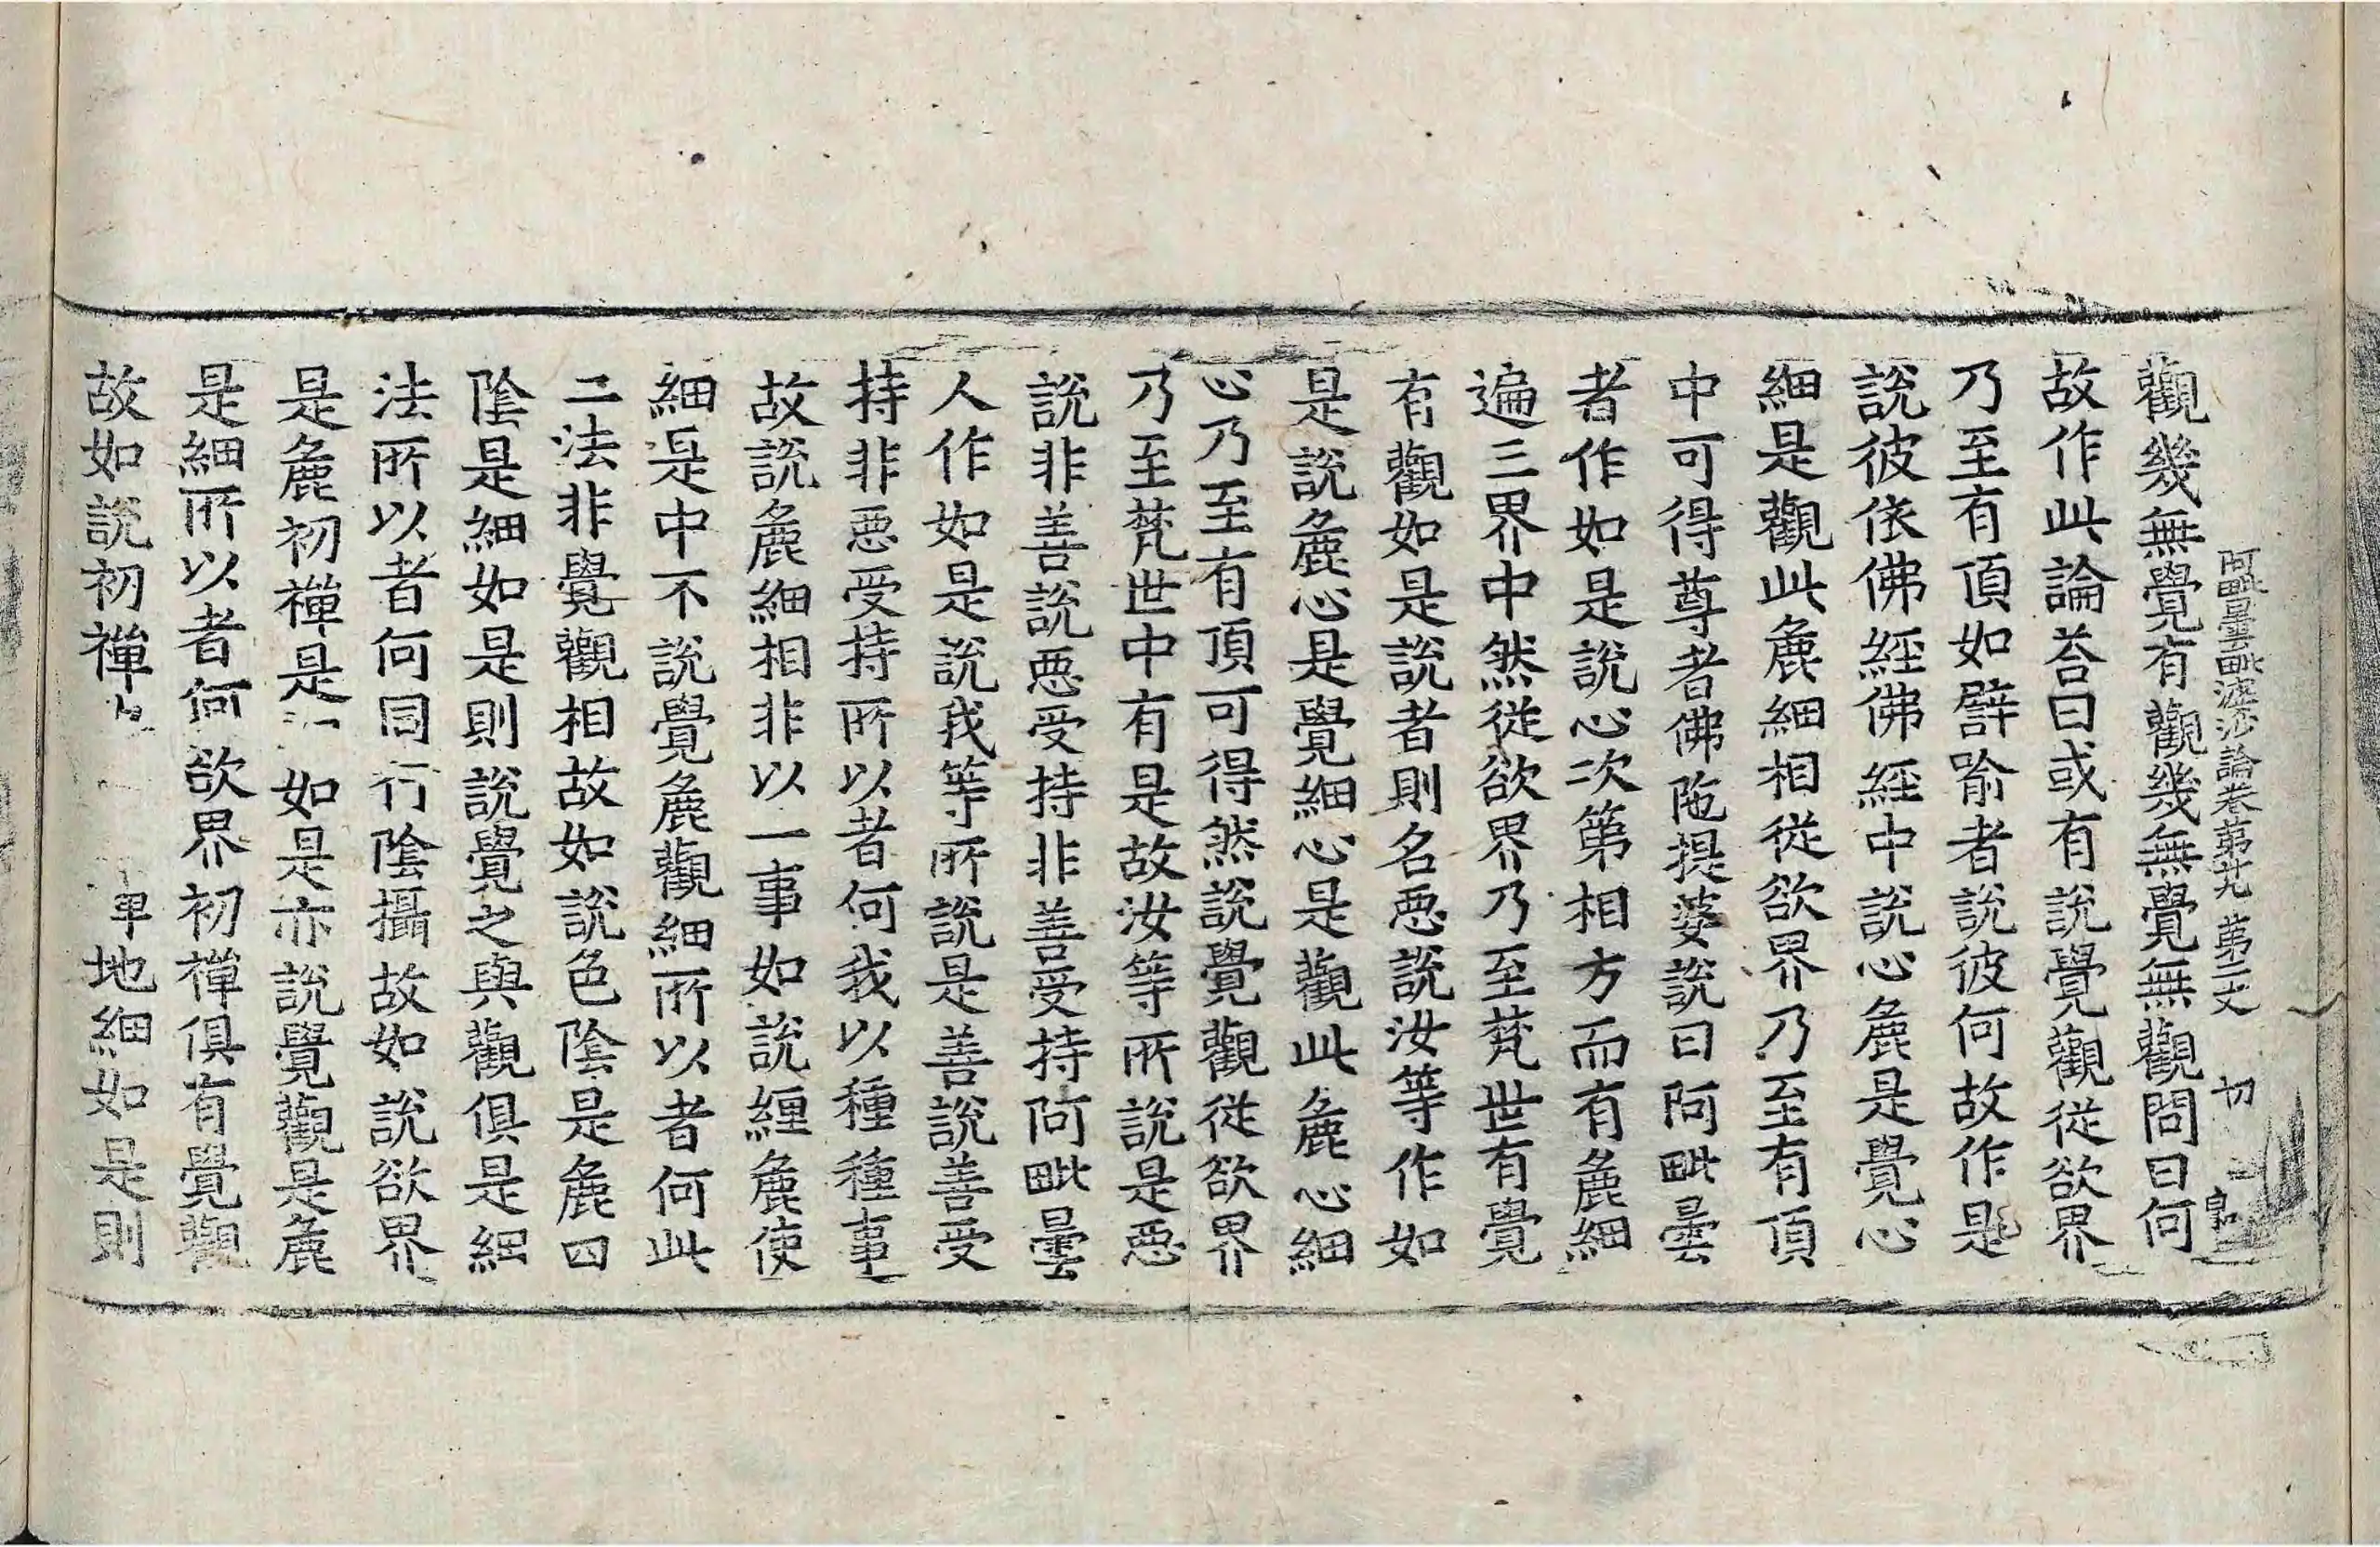 阿毗曇毗婆沙論卷第廿九　第二丈　切
觀幾無覺有觀幾無覺無觀問曰何
故作此論荅曰或有說覺觀從欲界
乃至有頂如譬喻者說彼何故作是
說彼依佛經佛經中說心麁是覺心
細是觀此麁細相從欲界乃至有頂
中可得尊者佛陁提婆說曰阿毗曇
者作如是說心次第相方而有麁細
遍三界中然從欲界乃至梵世有覺
有觀如是說者則名惡說汝等作如
是說麁心是覺細心是觀此麁心細
心乃至有頂可得然說覺觀從欲界
乃至梵世中有是故汝等所說是惡
說非善說惡受持非善受持阿毗曇
人作如是說我等所說是善說善受
持非惡受持所以者何我以種種事
故說麁細相非以一事如說纏麁使
細是中不說覺麁觀細所以者何此
二法非覺觀相故如說色陰是麁四
陰是細如是則說覺之與觀俱是細
法所以者何同行陰攝故如說欲界
是麁初禪是 如是亦說覺觀是麁
是細所以者何欲界初禪俱有覺觀
故如說初禪 地細如是則